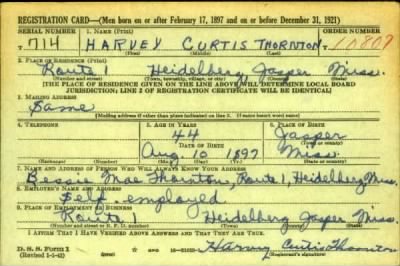 REGISTRATION CARD—(Men born on or after February 17, 1897 and on or before December 31, 1921)
SERIAL NUMBER 1. NAME (Print) ORDER NUMBER
714 HARVEY CURTIS THORNTON 10807
(First) (Middle) (Last)
2. PLACE OF RESIDENCE (Print)
Route 1 Heidelberg Jasper Miss.
(Number and street) (Town, township, village, or city) (County) (State)
[THE PLACE OF RESIDENCE GIVEN ON THE LINE ABOVE WILL DETERMINE LOCAL BOARD
JURISDICTION; LINE 2 OF REGISTRATION CERTIFICATE WILL BE IDENTICAL]
3. MAILING ADDRESS
Same
[Mailing address if other than place indicated on line 2. If same insert word same]
4. TELEPHONE 5. AGE IN YEARS 6. PLACE OF BIRTH
44 Jasper
DATE OF BIRTH (Town or county)
Aug. 10 1897 Miss.
(Exchange) (Number) (Mo.) (Day) (Yr.) (State or country)
7. NAME AND ADDRESS OF PERSON WHO WILL ALWAYS KNOW YOUR ADDRESS
Bessie Mae Thornton, Route 1, Heidelberg, Miss.
8. EMPLOYER'S NAME AND ADDRESS
Self employed
9. PLACE OF EMPLOYMENT OR BUSINESS
Route 1 Heidelberg Jasper Miss.
(Number and street or R. F. D. number) (Town) (County) (State)
I AFFIRM THAT I HAVE VERIFIED ABOVE ANSWERS AND THAT THEY ARE TRUE.
D. S. S. Form 1
(Revised 1-1-42) (over) Harvey Curtis Thornton
(Registrant's signature)